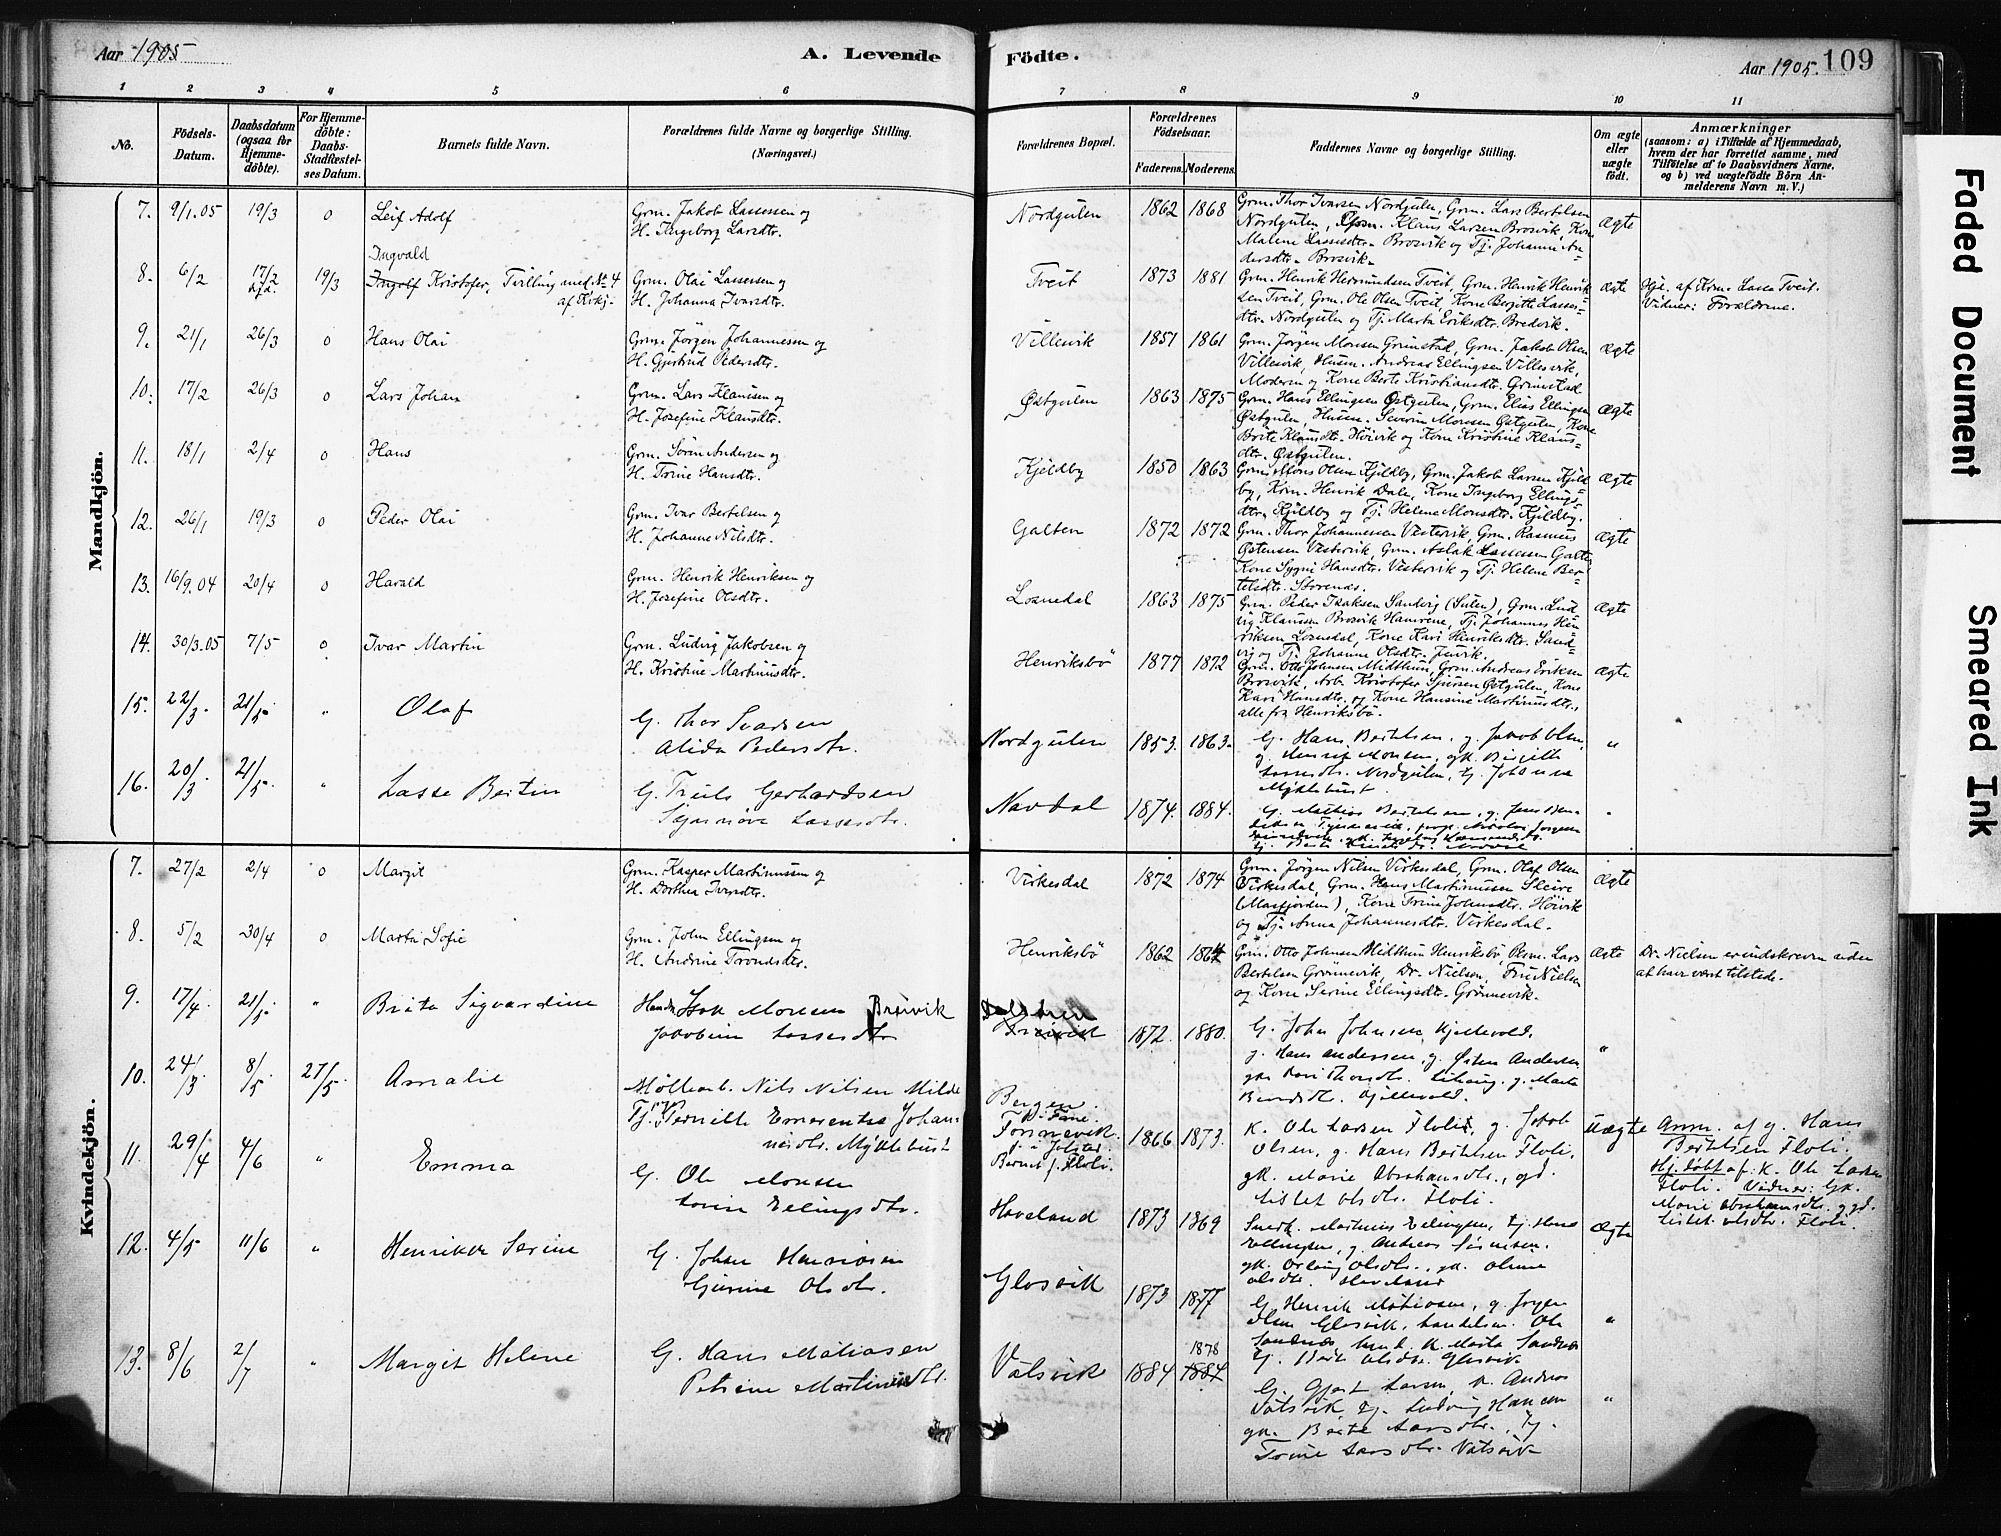 Aar 1905
A. Levende
Födte.
Aar 1905. 109
1 2 3 4 5 6 7 8 9 10 11
No.
Födsels-
Datum.
Daabsdatum
(ogsaa for
Hjemme-
döbte).
For Hjemme-
döbte:
Daabs-
Stadfæstel-
ses Datum.
Barnets fulde Navn.
Forældrenes fulde Navne og borgerlige Stilling.
(Næringsvei.)
Forældrenes Bopæl.
Forældrenes
Födselsaar.
Faderens. Moderens.
Faddernes Navne og borgerlige Stilling.
Om ægte
eller
uægte
födt.
Anmærkninger
(saasom: a) i Tilfælde af Hjemmedaab,
hvem der har forrettet samme, med
Tilföielse af to Daabsvidners Navne,
og b) ved uægtefödte Börn An-
melderens Navn m. V.)
Mandkjön.
7. 9/1.05 19/3 0 Leif Adolf
Grm. Jakob Lassesen og
H. Ingeborg Larsdtr.
Nordgulen 1862 1868
Grm. Thor Ivarsen Nordgulen, Grm. Lars Bertelsen
Nordgulen, Grm. Klaus Larsen Brosvik, Kone
Malene Lassesdtr. Brosvik og Tj. Johanne An-
dersdtr. Brosvik.
Ægte
Ingvald
8. 6/2 17/2 hjd. 19/3 Ingolf Kristofer, Tvilling med No 4
af Kvkj.
Grm. Olai Lassesen og
H. Johanna Ivarsdtr.
Tveit 1873 1881
Grm. Henrik Hermundsen Tveit, Grm. Henrik Henrik-
sen Tveit, Grm. Ole Olsen Tveit, Kone Bergitte Lasses-
dtr. Nordgulen og Tj. Marta Eriksdtr. Bredvik.
Ægte
Hje. af Krm. Lasse Tveit.
Vidner: Forældrene.
9. 21/1 26/3 0 Hans Olai
Grm. Jörgen Johannessen og
H. Gjertrud Pedersdtr.
Villevik 1851 1861
Grm. Jörgen Monsen Grimstad, Grm. Jakob Olsen
Villesvik, Husm. Andreas Ellingsen Villesvik,
Moderen og Kone Berte Kristiansdtr. Grimstad
Ægte
10. 17/2 26/3 0 Lars Johan
Grm. Lars Klausen og
H. Josefine Klausdtr.
Østgulen 1863 1875
Grm. Hans Ellingsen Østgulen, Grm. Elias Ellingsen
Østgulen, Husm. Severin Monsen Østgulen, Kone
Brite Klausdtr. Höivik og Kone Kristine Klaus-
dtr. Østgulen.
Ægte
11. 18/1 2/4 0 Hans
Grm. Sörin Andersen og
H. Trine Hansdtr.
Kjeldby 1850 1863
Grm. Mons Olsen Kjeldby, Grm. Jakob Larsen Kjeld-
by, Krm. Henrik Dale, Kone Ingeborg Ellings-
dtr. Kjeldby og Tj. Helene Monsdtr. Kjeldby.
Ægte
12. 26/1 19/3 0 Peder Olai
Grm. Ivar Bertelsen og
H. Johanne Nilsdtr.
Galten 1872 1872
Grm. Thor Johannessen Vestervik, Grm. Rasmus
Østensen Vestervik, Grm. Aslak Lassesen Galten
Kone Sygni Hansdtr. Vestervik og Tj. Helene Ber-
telsdtr. Storenös.
Ægte
13. 16/9.04 20/4 0 Harald
Grm. Henrik Henriksen og
H. Josefine Olsdtr.
Losnedal 1863 1875
Grm. Peder Isaksen Sandvig (Sulen), Grm. Lud-
vig Klaussen Brosvik Hamrene, Tj. Johannes Hen-
riksen Losnedal, Kone Kari Henriksdtr. Sand-
vig og Tj. Johanne Olsdtr.
Ægte
14. 30/3.05 7/5 0 Ivar Martin
Grm. Ludvig Jakobsen og
H. Kristine Martinusdtr.
Henriksbö 1877 1872
Grm. Otto Johnsen Midthun, Grm. Andreas Eriksen
Brosvik, Arb. Kristofer Sjursen Østgulen, Kone
Kari Hansdtr. og Kone Hansine Martinusdtr.,
alle fra Henriksbö.
Ægte
15. 22/3. 21/5. " Olaf
G. Thor Ivarsen
Alida Pedersdtr.
Nordgulen 1853. 1863.
G. Hans Bertelsen, g. Jakob Olsen,
g. Henrik Monsen, gk. Birgitte
Lassesdtr. Nordgulen, tj. Johanna
Myklebust.
"
16. 20/3. 21/5. " Lasse Bertin
G. Truls Gerhardsen
Synnöve Lassesdtr.
Navdal 1874. 1884.
"
Kvindekjön.
7. 27/2 2/4 0 Margit
Grm. Kasper Martinussen og
H. Dorthea Iversdtr.
Virkesdal 1872 1874
Grm. Jörgen Nilsen Virkesdal, Grm. Olaf Olsen
Virkesdal, Grm. Hans Martinussen Sleire
(Masfjorden), Kone Trine Johnsdtr. Höivik
og Tj. Anna Johannesdtr. Virkesdal.
Ægte
8. 5/2 30/4 0 Marta Sofie
Grm. John Ellingsen og
H. Andrine Trondsdtr.
Henriksbö 1862 1864
Grm. Otto Johnsen Midthun Henriksbö, Grm. Lars
Bertelsen Grönnevik, Dr. Nielsen, Fru Nielsen
og Kone Serine Ellingsdtr. Grönnevik.
Ægte
Dr. Nielsen er indskreven uden
at have vært tilstede.
9. 17/4. 21/5. " Brita Sigvardine
Handl. Isak Monsen Breivik
Jakobine Lassesdtr.
Breivik 1872. 1880.
G. John Johnsen Kjellevold,
g. Hans Anderssen, g. Østen Andersen
"
10. 24/3. 8/5. 27/5. Amalie
Möllearb. Nils Nilsen Milde
Tj. Pernille Emerentse Johan-
nesdtr. Myklebust
Bergen.
f. i Jölster.
Barnet f. Floli.
1866 1873.
K. Ole Larsen Floli, g. Jakob
Olsen, g. Hans Bertelsen Floli,
gk. Marie Abrahamsdtr., gd.
Lisbet Olsdtr. Floli.
Uægte
Anm. af g. Hans
Bertelsen Floli.
Hj. döbt af K. Ole Larsen
Floli. Vidner: Gk.
Marie Abrahamsdtr. og gd.
Lisbet Olsdtr. Floli.
11. 29/4 4/6 " Emma
G. Ole Monsen
Sorine Ellingsdtr.
Haveland 1873 1869
Smed. Martinus Ellingsen, tj. Hans
Ellingsen, g. Andreas Sörensen,
Olsdtr. Haveland
Ægte
12. 4/5 11/6 " Henrikke Serine
G. Johan Henriksen
Gurine Olsdtr.
Glosvik 1873 1877
G. Henrik Matiasen, g. Jörgen
Olsen Glosvik, Handelsm. Ole
Sandnæs
"
13. 8/6 2/7 " Margit Helene
G. Hans Matiasen
Petrine Martinusdtr.
Vatsvik 1884 1878 1884
G. Gjert Larsen, K. Andreas
Vatsvik tj. Ludvig Hansen
gk. Brite Larsdtr., tj.
Trine Larsdtr. Vatsvik
"
Faded Document
Smeared Ink